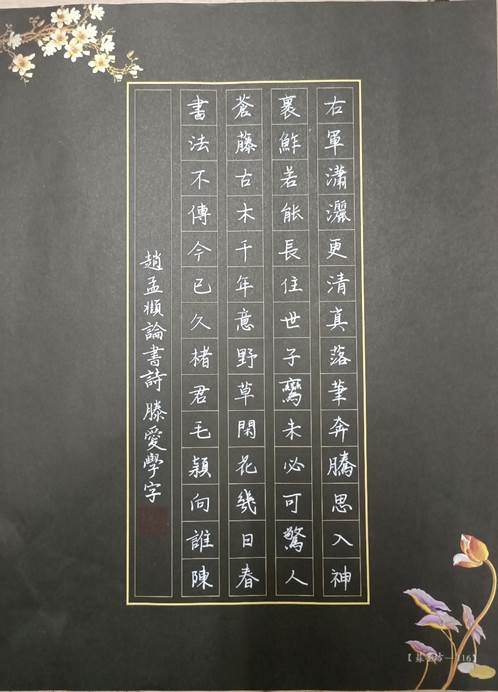 右軍瀟灑更清真落筆奔騰思入神
裹鮓若能長住世子鸞未必可驚人
蒼藤古木千年意野草閑花幾日春
書法不傳今已久楮君毛穎向誰陳
趙孟頫論書詩 滕愛學字
116】